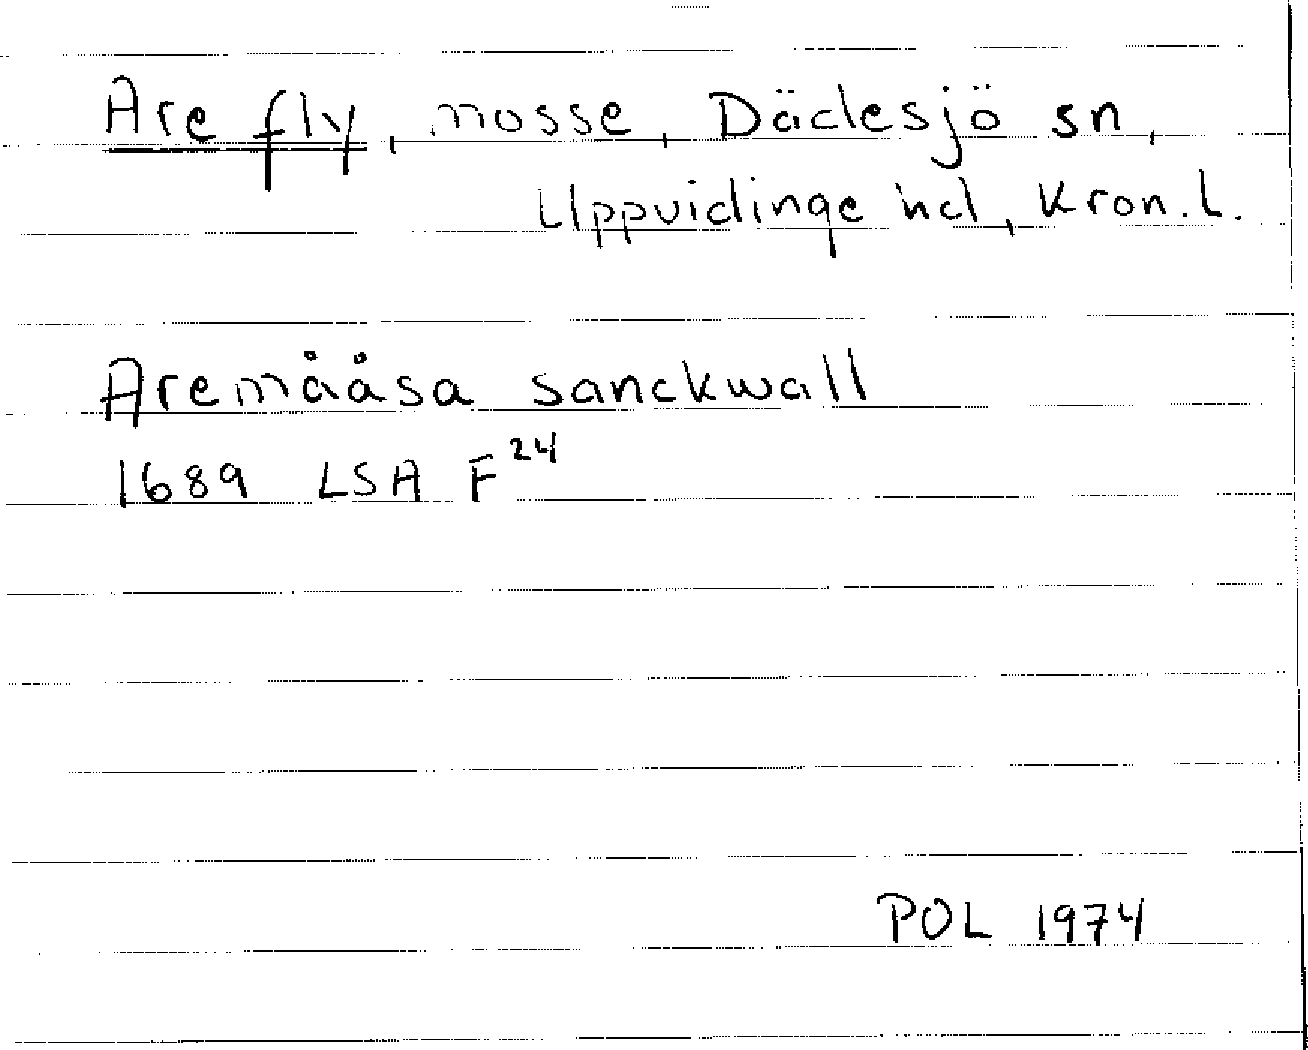 Are fly, mosse, Dädesjö sn,
Uppvidinge hd, Kron.l.
Aremååsa sanckwall
1689 LSA F 24
POL 1974